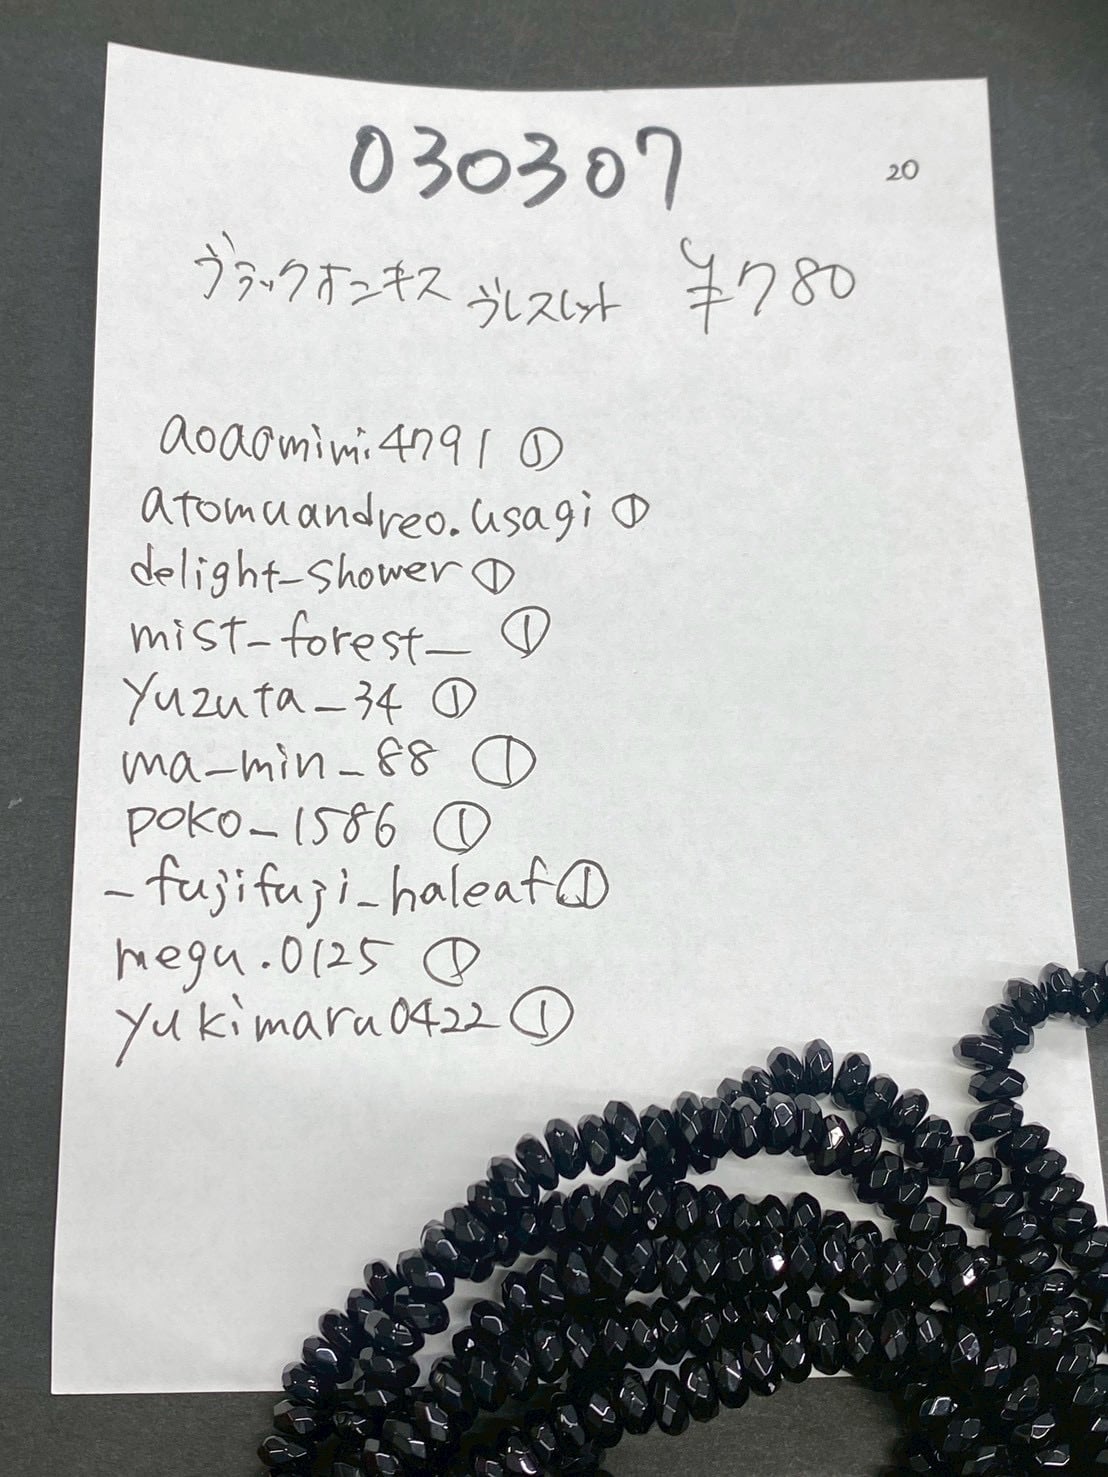 030307 20
ブラックオニキス ブレスレット ¥780
aoaomimi4791 ①
atomuandreo.usagi ①
delight_shower ①
mist_forest_ ①
yuzuta_34 ①
ma_min_88 ①
poko_1586 ①
_fujifuji_haleaf ①
megu.0125 ①
yukimaru0422 ①